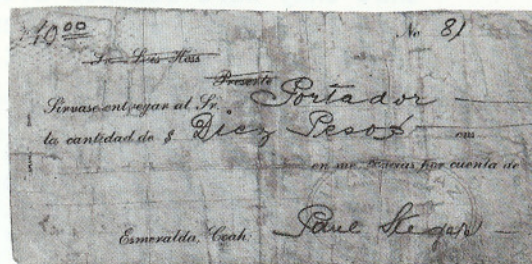 $10 00 No 81
Sr. Luis Hess
Presente
Sírvase entregar al Sr. Portador
la cantidad de $ Diez Pesos en
en mercancías por cuenta de
Esmeralda, Coah. Paul Steger